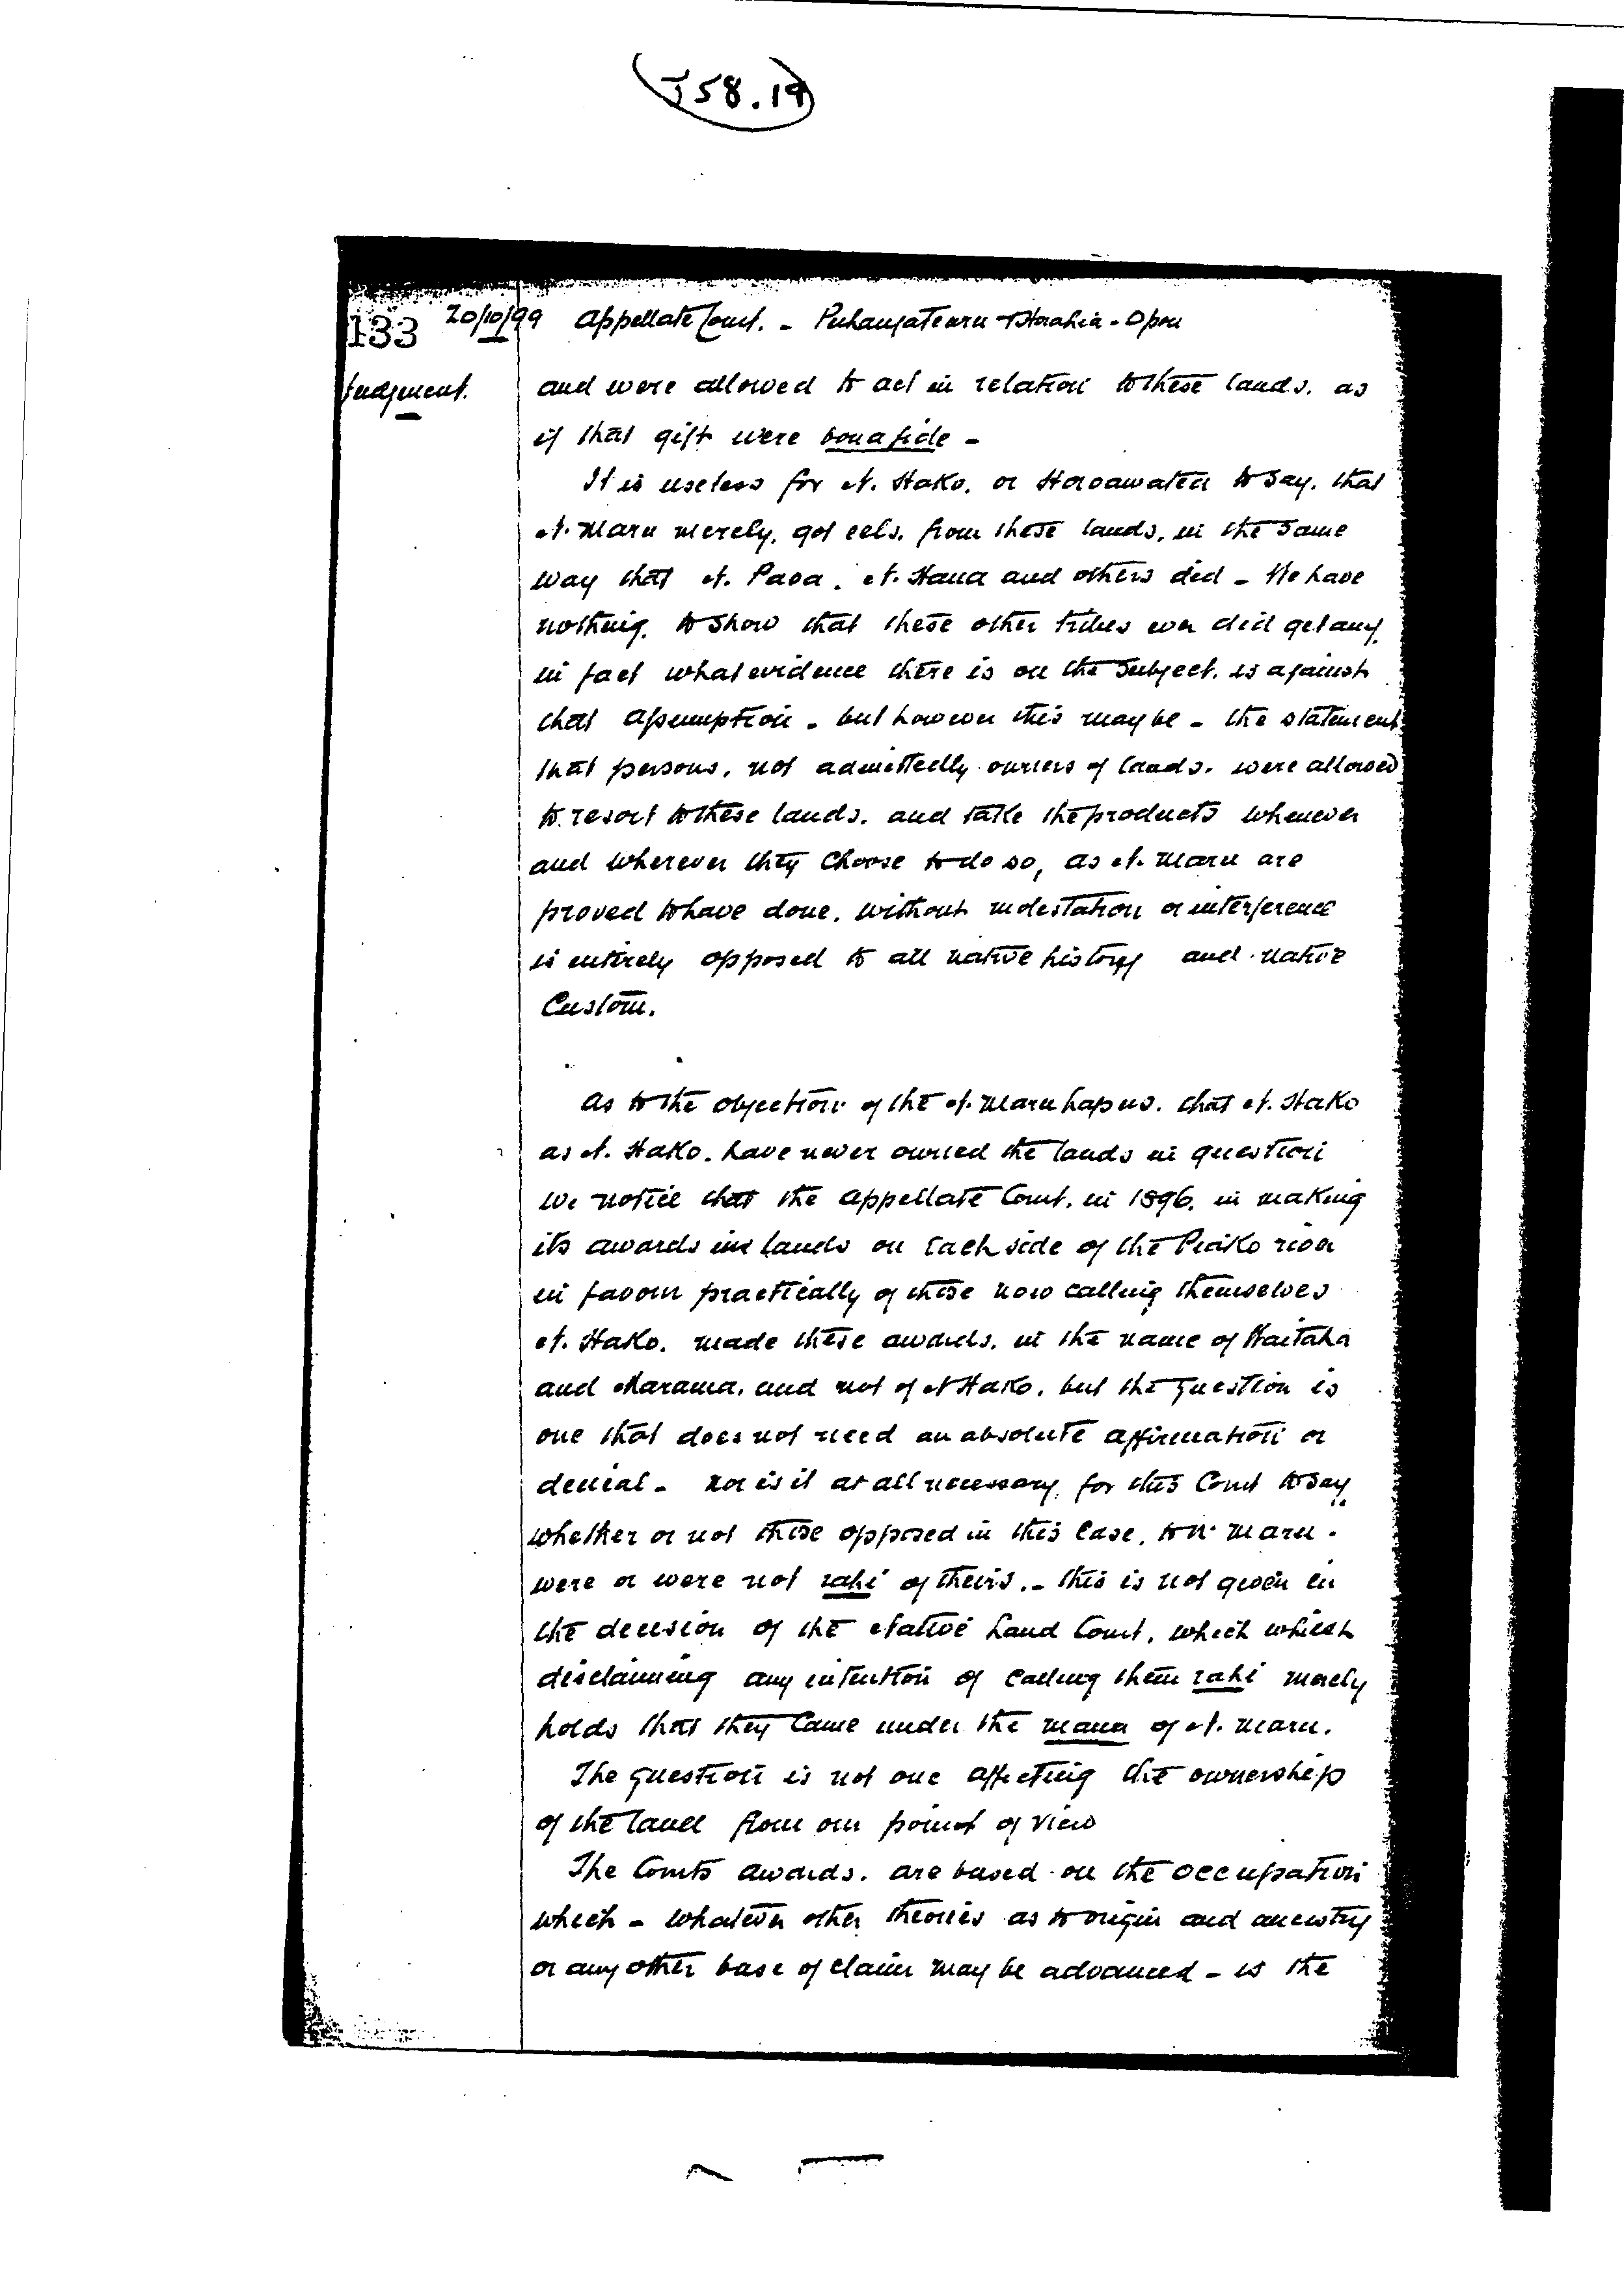 J58.19
133
20/10/99 Appellate Court. - Puhangateuru & Horahia - Opou
Judgment.
and were allowed to act in relation to these lands. as
if that gift were bona fide -
It is useless for N. Hako. or Horoawatea to say. that
N. Maru merely. got eels. from these lands, in the same
way that N. Paoa. N. Haua and others did - We have
nothing. to show that these other tribes ever did get any.
in fact what evidence there is on the subject. is against
that assumption. but however this may be - the statement
that persons. not admittedly owners of lands. were allowed
to resort to these lands. and take the products whenever
and wherever they choose to do so, as N. Maru are
proved to have done. without molestation or interference
is entirely opposed to all native history and native
Custom.
As to the objection of the N. Maru hapus. that N. Hako
as N. Hako. have never owned the lands in question
We notice that the Appellate Court. in 1896. in making
its awards in lands on each side of the Piako river
in favour practically of those now calling themselves
N. Hako. made these awards. in the name of Waitaha
and Marama. and not of N Hako. but the question is
one that does not need an absolute affirmation or
denial - nor is it at all necessary. for this Court to say
whether or not those opposed in this case. to N. Maru.
were or were not rahi of theirs. - this is not given in
the decision of the Native Land Court. which whilst
disclaiming any intention of calling them rahi merely
holds that they came under the mana of N. Maru.
The question is not one affecting the ownership
of the land from our point of view
The Courts awards. are based on the occupation
which - whatever other theories as to origin and ancestry
or any other base of claim may be advanced - is the